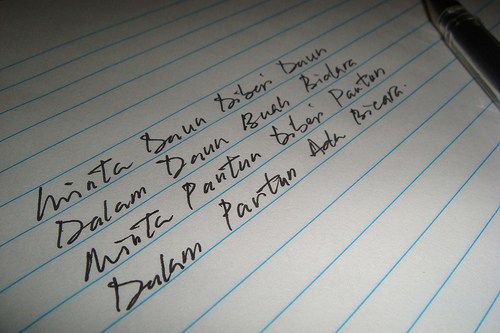 Minta Daun Diberi Daun
Dalam Daun Buah Bidara
Minta Pantun Diberi Pantun
Dalam Pantun Ada Bicara.